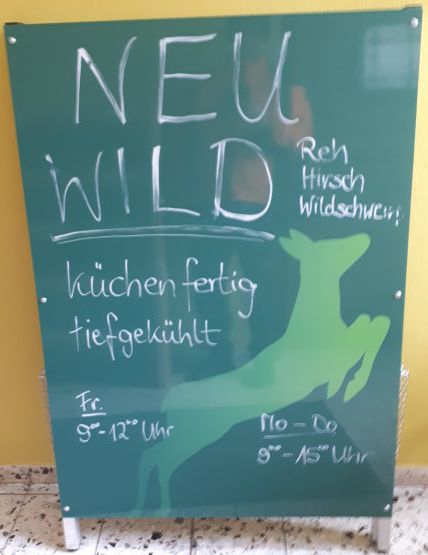 NEU
WILD
Reh
Hirsch
Wildschwein
küchenfertig
tiefgekühlt
Fr.
9°°-12°° Uhr
Mo-Do
9°°-15°° Uhr